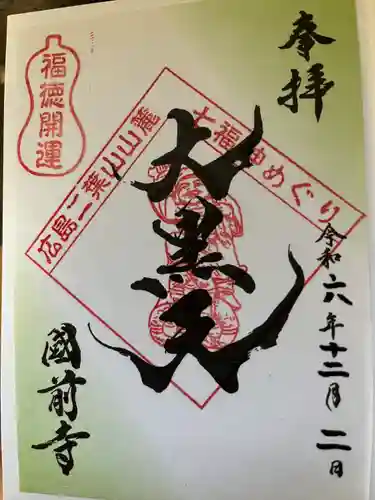 奉拝
令和六年十二月二日
大黒天
七福神めぐり
広島二葉山山麓
福徳開運
國前寺